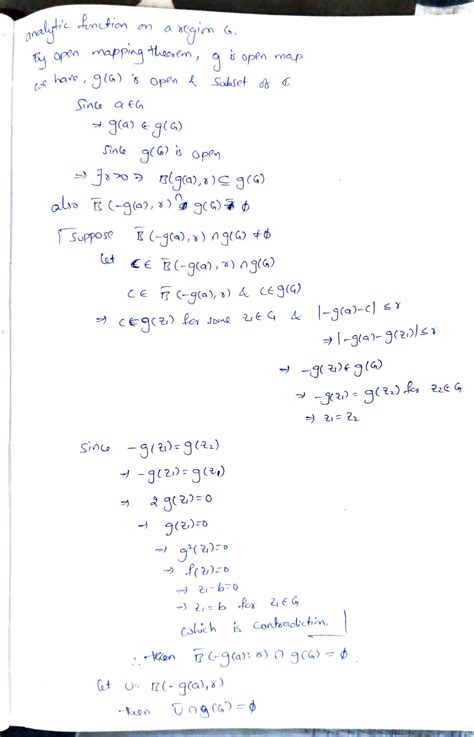 analytic function on a region G.
By open mapping theorem, g is open map
we have, g(G) is open & subset of ℂ
Since a∈G
⇒ g(a) ∈ g(G)
Since g(G) is open
⇒ ∃r>0 ∋ B(g(a),r) ⊆ g(G)
also B̄(-g(a),r) ∩ g(G) = ϕ
Suppose B̄(-g(a),r) ∩ g(G) ≠ ϕ
let c∈ B̄(-g(a),r) ∩ g(G)
c∈ B̄(-g(a),r) & c∈g(G)
⇒ c∈g(z₁) for some z₁∈G & |-g(a)-c| ≤ r
⇒ |-g(a)-g(z₁)| ≤ r
⇒ -g(z₁) ∈ g(G)
⇒ -g(z₁) = g(z₂) for z₂∈G
⇒ z₁=z₂
Since -g(z₁)=g(z₂)
⇒ -g(z₁)=g(z₁)
⇒ 2g(z₁)=0
⇒ g(z₁)=0
⇒ g²(z₁)=0
⇒ f(z₁)=0
⇒ z₁-b=0
⇒ z₁=b for z₁∈G
which is contradiction.
∴ then B̄(-g(a):r) ∩ g(G) = ϕ
let U= B(-g(a),r)
then Ū∩g(G)=ϕ